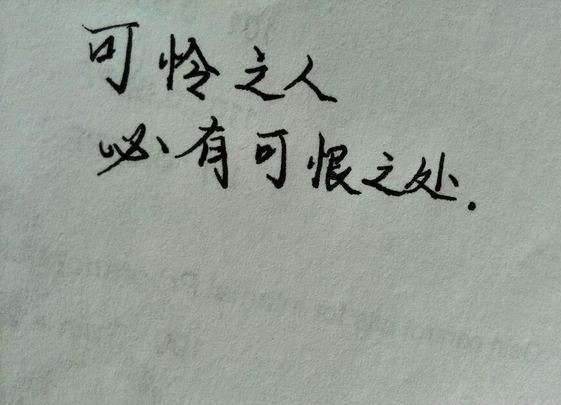 可怜之人
必有可恨之处.